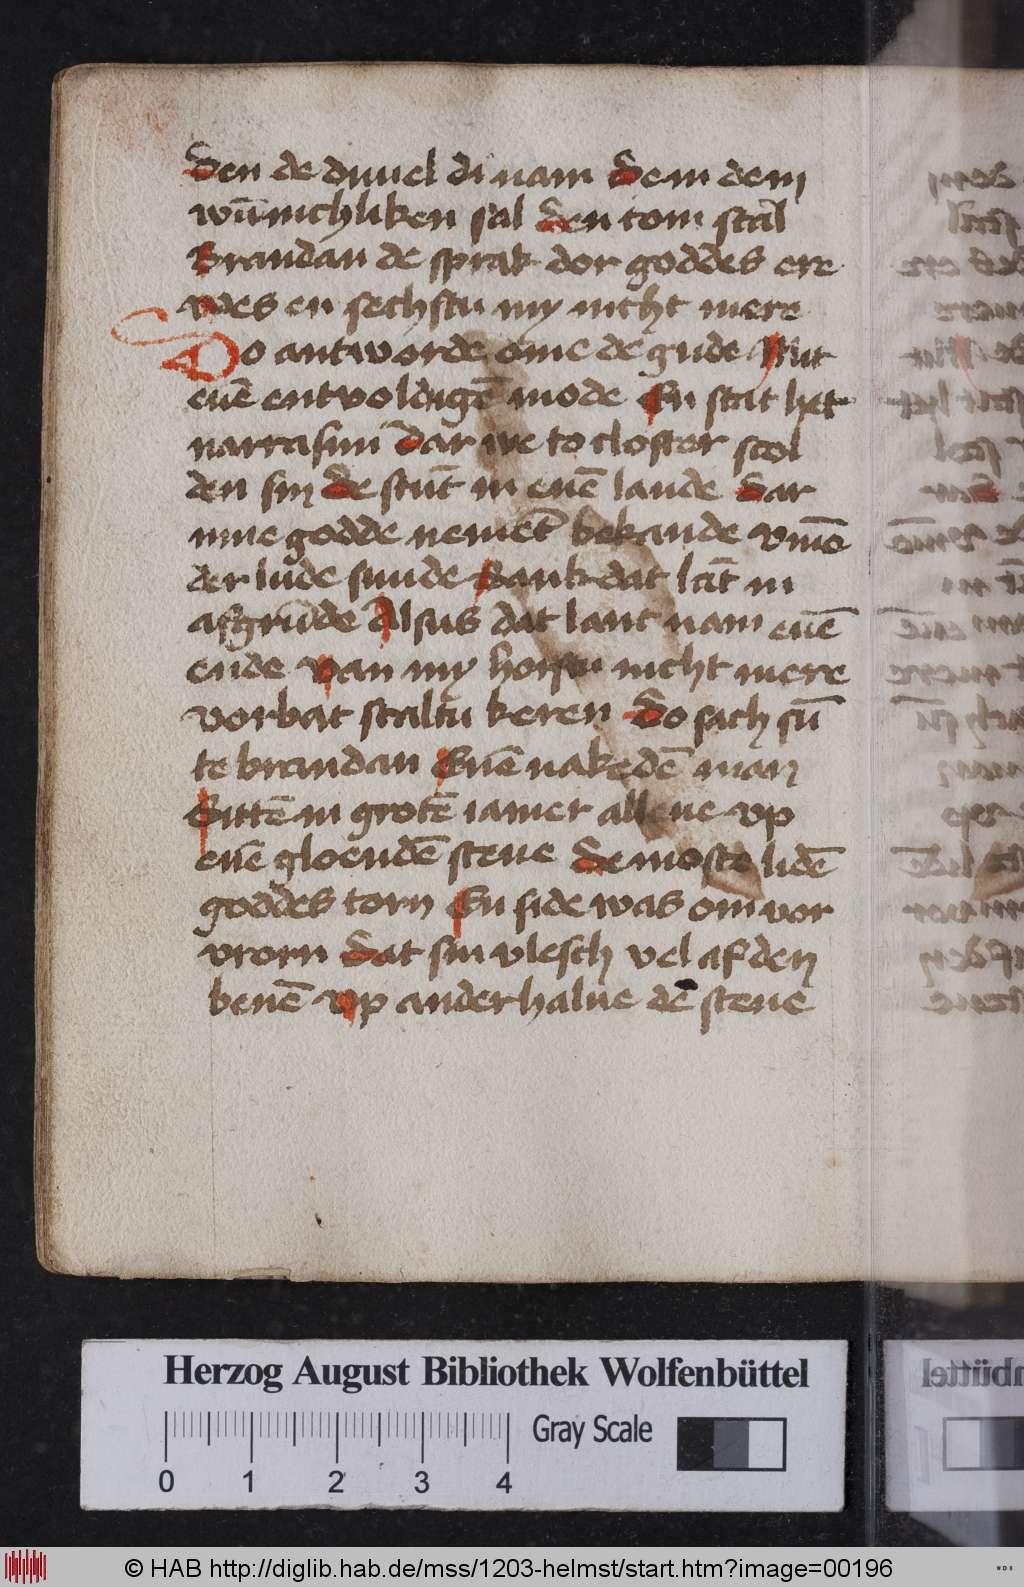 Den de duuel di nam Dem dem
wūnichliken sal den tom stal
Brandan de sprak dor goddes ere
wes en sechstu my nicht mere
Do antworde ome de gude Mit
enē entvoldigē mode En stat het
narrasim Dar we to closter scol
den sin De stūt in enē lande Dar
me godde nemēt bekande vmē
der lude sunde Sank dat lāt in
afgrūde Alsus dat lant nam enē
ende van my horstu nicht mere
vorbat scaltu keren Do sach sū
te brandan Enē nakedē man
Sittē in grotē iamer allene vp
enē gloendē stene De moste lidē
goddes torn En side was om vor
vrorn Dat sin vlesch vel af den
benē vp anderhalue dē stene
Herzog August Bibliothek Wolfenbüttel
Gray Scale
0 1 2 3 4
© HAB http://diglib.hab.de/mss/1203-helmst/start.htm?image=00196